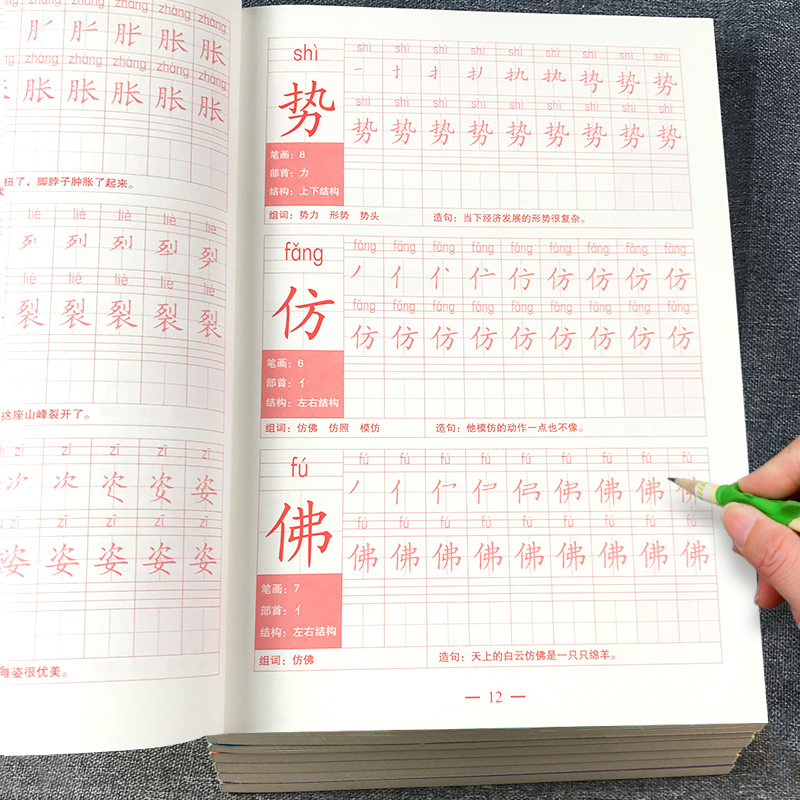 zhàng zhàng zhàng zhàng zhàng
胀 胀
zhàng zhàng zhàng zhàng zhàng
胀 胀 胀 胀 胀
扭了，脚脖子肿胀了起来。
liè liè liè liè liè
列 列
liè liè liè liè liè
裂 裂 裂 裂 裂
这座山峰裂开了。
zī zī zī zī
次 次 姿 姿
zī zī zī zī zī
姿 姿 姿 姿 姿
舞姿很优美。
shì
势
shì shì shì shì shì shì shì shì shì
势 势
shì shì shì shì shì shì shì shì shì
势 势 势 势 势 势 势 势 势
笔画：8
部首：力
结构：上下结构
组词：势力 形势 势头
造句：当下经济发展的形势很复杂。
fǎng
仿
fǎng fǎng fǎng fǎng fǎng fǎng fǎng fǎng fǎng
丿 亻 仿 仿 仿 仿 仿
fǎng fǎng fǎng fǎng fǎng fǎng fǎng fǎng fǎng
仿 仿 仿 仿 仿 仿 仿 仿 仿
笔画：6
部首：亻
结构：左右结构
组词：仿佛 仿照 模仿
造句：他模仿的动作一点也不像。
fú
佛
fú fú fú fú fú fú fú fú fú
丿 亻 佛 佛 佛
fú fú fú fú fú fú fú fú fú
佛 佛 佛 佛 佛 佛 佛 佛 佛
笔画：7
部首：亻
结构：左右结构
组词：仿佛
造句：天上的白云仿佛是一只只绵羊。
— 12 —